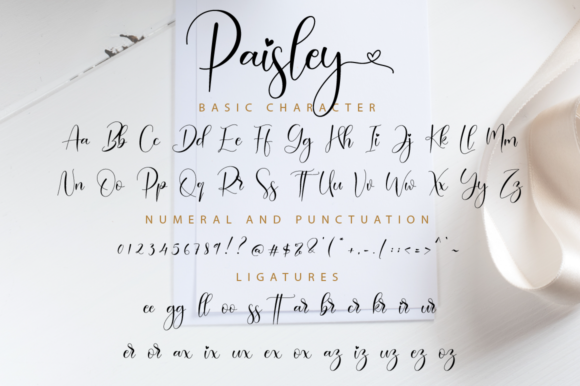 Paisley
BASIC CHARACTER
Aa Bb Cc Dd Ee Ff Gg Hh Ii Jj Kk Ll Mm
Nn Oo Pp Qq Rr Ss Tt Uu Vv Ww Xx Yy Zz
NUMERAL AND PUNCTUATION
0123456789!?@#$%&
LIGATURES
ee gg ll oo ss tt ar br cr kr ir ur
er or ax ix ux ex ox az iz uz ez oz